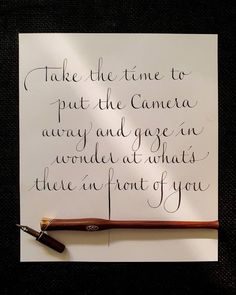 Take the time to
put the Camera
away and gaze in
wonder at what's
there in front of you